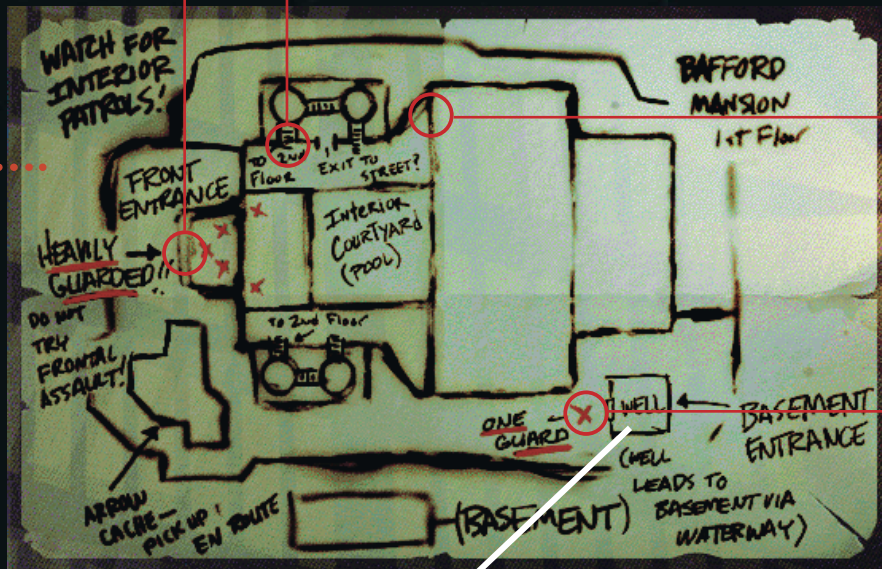 WATCH FOR
INTERIOR
PATROLS!
BAFFORD
MANSION
1st Floor
TO 2nd
Floor
EXIT TO
STREET?
FRONT
ENTRANCE
INTERIOR
COURTYARD
(POOL)
HEAVILY
GUARDED!!
DO NOT
TRY
FRONTAL
ASSAULT!
to 2nd Floor
ONE
GUARD
WELL
BASEMENT
ENTRANCE
(WELL
LEADS TO
BASEMENT VIA
WATERWAY)
ARROW
CACHE—
PICK UP
EN ROUTE
(BASEMENT)